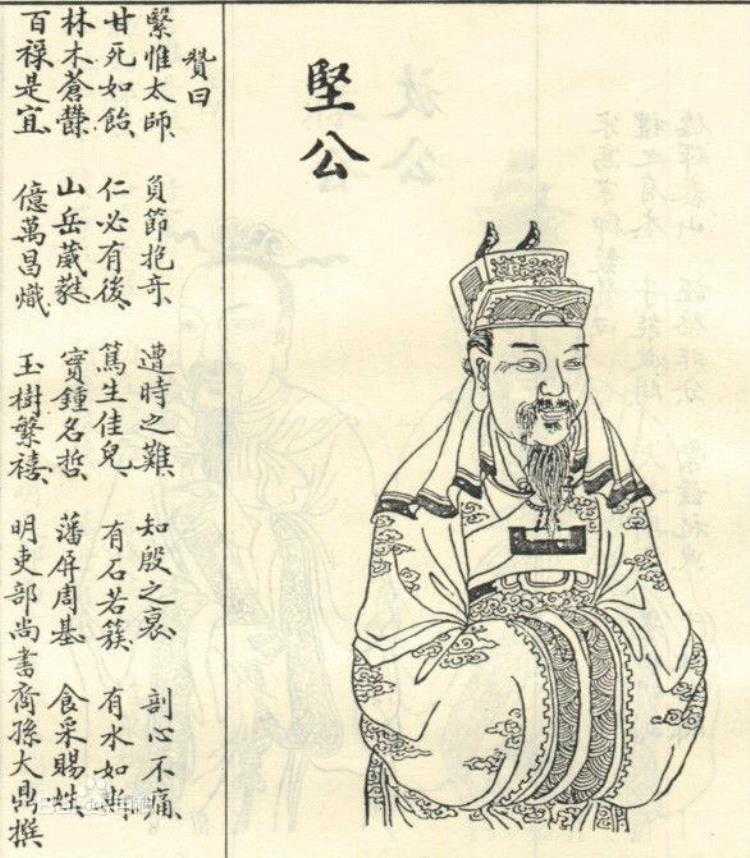 堅公
贊曰
繄惟太師 負節抱奇 遭時之難 知殷之衰 剖心不痛
甘死如飴 仁必有後 篤生佳兒 有石若簇 有水如斯
林木蒼欝 山岳葳蕤 實鍾名哲 藩屏周基 食采賜姓
百祿是宜 億萬昌熾 玉樹繁禧 明吏部尚書裔孫大鼎撰